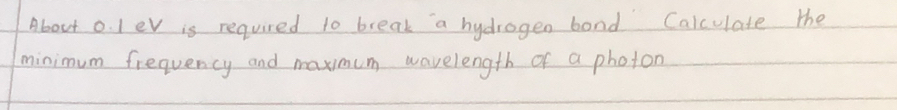 About 0.1 eV is required to break "a hydrogen bond" Calculate the
minimum frequency and maximum wavelength of a photon